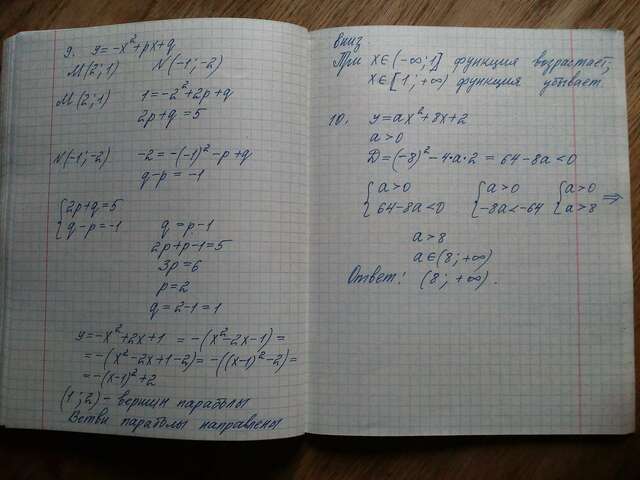 9. y=-x²+px+q
M(2;1) N(-1;-2)
M(2;1) 1=-2²+2p+q
2p+q=5
N(-1;-2) -2=-(-1)²-p+q
q-p=-1
{2p+q=5
{q-p=-1 q=p-1
2p+p-1=5
3p=6
p=2
q=2-1=1
y=-x²+2x+1 = -(x²-2x-1)=
=-(x²-2x+1-2)= -((x-1)²-2)=
=-(x-1)²+2
(1;2)- вершин параболы
Ветви параболы направлены
вниз.
При x∈(-∞;1] функция возрастает,
x∈[1;+∞) функция убывает.
10. y=ax²+8x+2
a>0
D=(-8)²-4·a·2 = 64-8a<0
{a>0 {a>0 {a>0
{64-8a<0 {-8a<-64 {a>8 ⇒
a>8
a∈(8;+∞)
Ответ: (8;+∞).